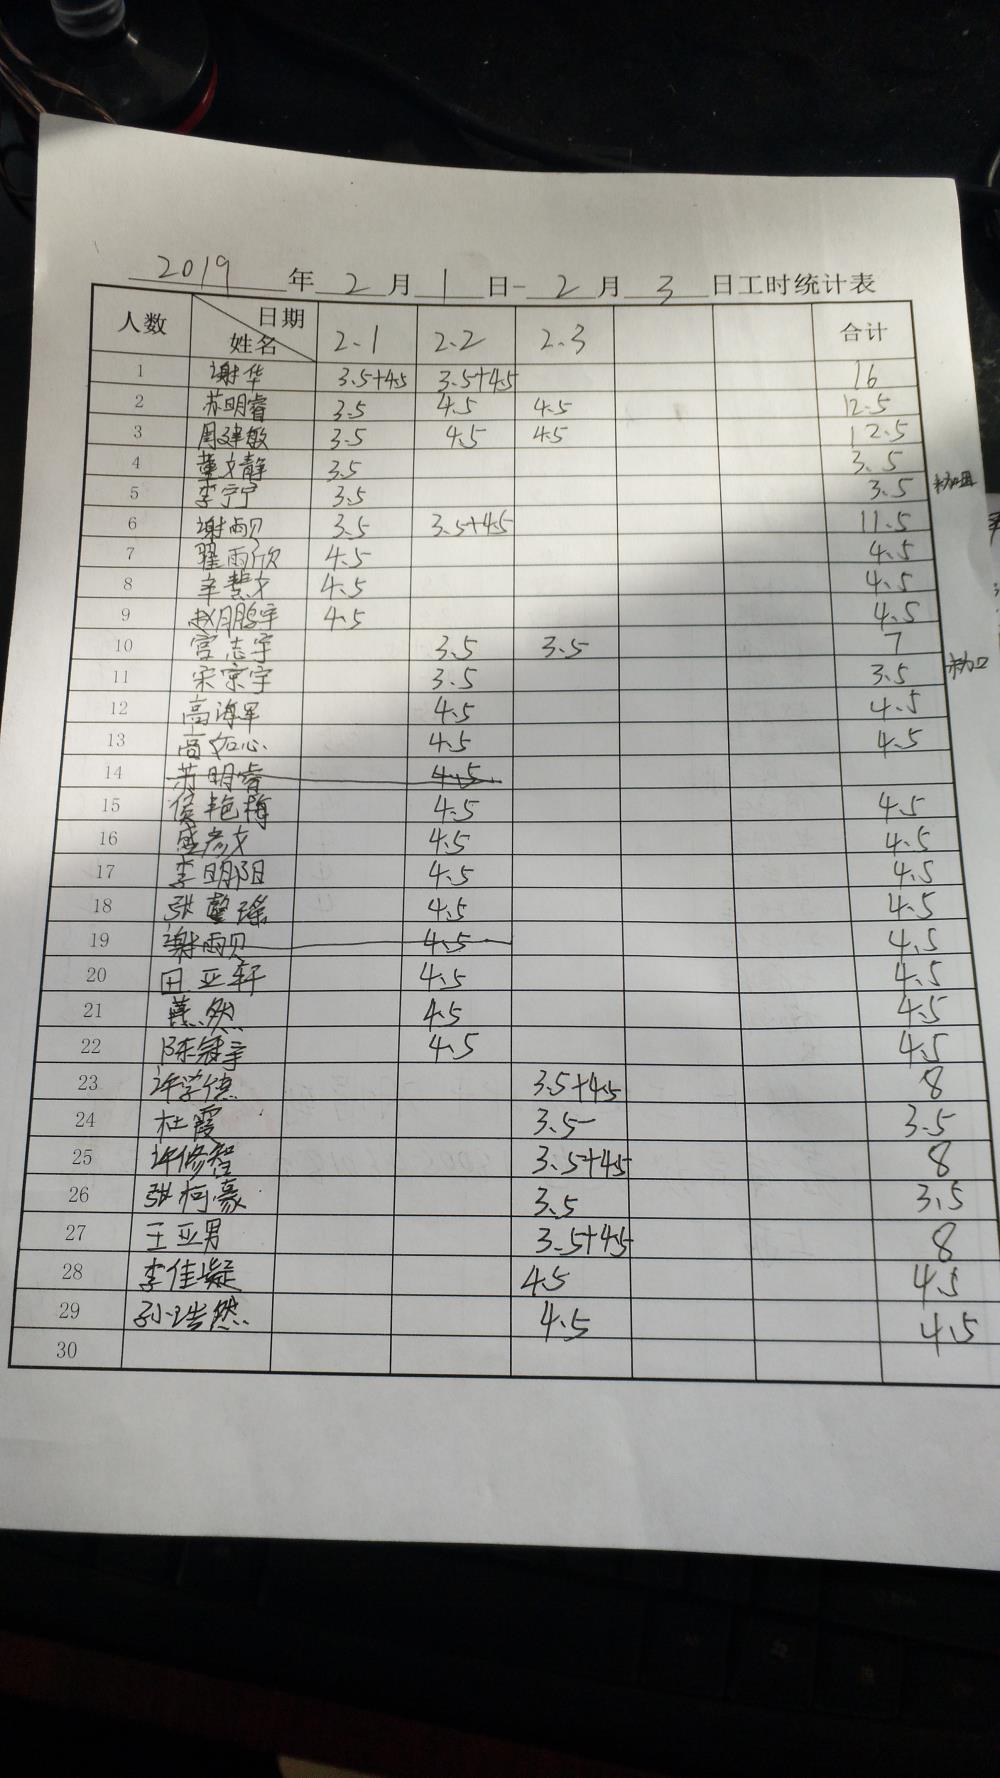 2019年2月1日-2月3日工时统计表
人数 日期 姓名 2.1 2.2 2.3 合计
1 谢华 3.5+4.5 3.5+4.5 16
2 苏明睿 3.5 4.5 4.5 12.5
3 周建敏 3.5 4.5 4.5 12.5
4 董文静 3.5 3.5
5 李宁宁 3.5 3.5
6 谢雨贝 3.5 3.5+4.5 11.5
7 翟雨欣 4.5 4.5
8 辛慧文 4.5 4.5
9 赵鹏宇 4.5 4.5
10 宫志宇 3.5 3.5 7
11 宋京宇 3.5 3.5
12 高海军 4.5 4.5
13 高如心 4.5 4.5
14 苏明睿 4.5
15 侯艳梅 4.5 4.5
16 盛彦文 4.5 4.5
17 李明阳 4.5 4.5
18 张馨瑶 4.5 4.5
19 谢雨贝 4.5 4.5
20 田亚轩 4.5 4.5
21 4.5 4.5
22 陈冠宇 4.5 4.5
23 许学德 3.5+4.5 8
24 杜霞 3.5 3.5
25 许修智 3.5+4.5 8
26 张柯豪 3.5 3.5
27 王亚男 3.5+4.5 8
28 李佳凝 4.5 4.5
29 孙浩然 4.5 4.5
30